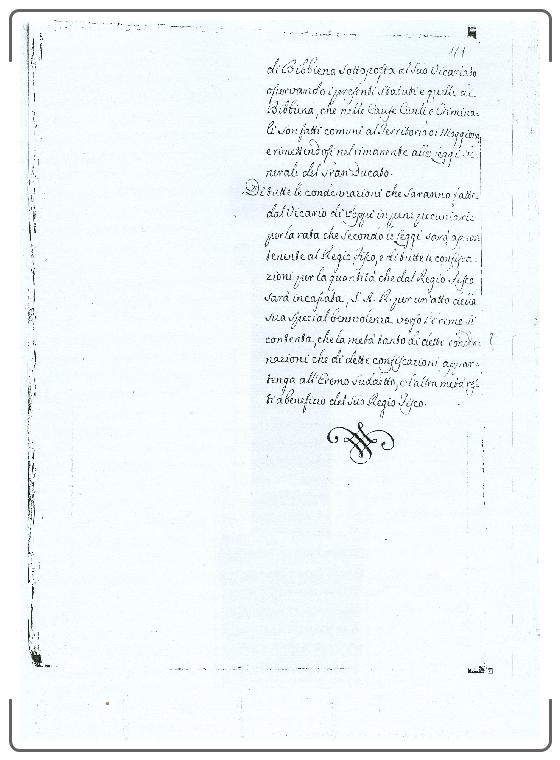 41
di Bibbiena sottoposta al suo Vicariato
osservando i presenti statuti e quelli di
Bibbiena, che nelle Cause Civili e Crimina-
li son fatti comuni al Territorio di Moggiona
e rimettendosi nel rimanente alle Leggi Ge-
nerali del Gran Ducato.
Di tutte le condennazioni che saranno fatte
dal Vicario di Poppi in pene pecuniarie
per la rata che secondo le Leggi sarà appar-
tenente al Regio Fisco, e di tutte le confisca-
zioni per la quantità che dal Regio Fisco
sarà incassata, S. A. R. per un'atto della
sua special benevolenza verso l'Eremo si
contenta, che la metà tanto di dette conden-
nazioni che di dette confiscazioni appar-
tenga all'Eremo suddetto, e l'altra metà res-
ti a beneficio del suo Regio Fisco.